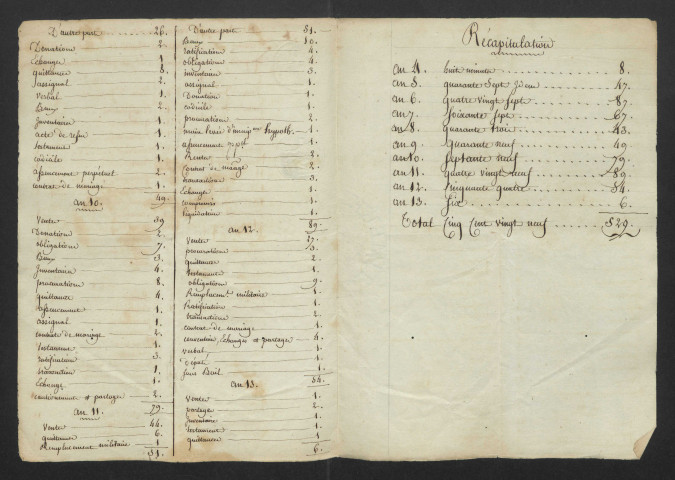 D'autre part 26.
Donation 2.
Echange 1.
quittance 8.
assignal 2.
verbal 1.
Baux 2.
Inventaire 1.
acte de refus 1.
testament 1.
codicile 1.
afencement perpétuel 2.
contrat de mariage 1.
49.
an 10.
Vente 39
Donation 2.
obligation 7.
Baux 3.
Inventaire 4.
procuration 8.
quittance 4.
afencement 1.
assignal 1.
contrat de mariage 2.
testament 1.
ratification 3.
transaction 1.
Echange 1.
cautionnement et partage 2.
79.
an 11.
Vente 44.
quittance 6.
Remplacement militaire 1
51.
D'autre part 51.
Baux 10.
ratification 4.
obligation 4.
inventaire 3.
assignal 1.
Donation 1.
codicile 1.
procuration 2.
1.
afencement 1.
Rente
contrat de mariage 2
transaction 3.
Echange 1.
compromis 1.
liquidation 1.
89.
an 12.
Vente 27.
procuration 3.
quittance 2.
testament 1.
obligation 9.
Remplacemt. militaire 1.
Ratification 1.
transaction 2.
contrat de mariage 1.
convention, Echanges et partage 4.
verbal 1.
Dépôt 1.
sous Bail 1.
54.
an 13.
Vente 1.
partage 2.
Inventaire 1.
testament 1.
quittance 1
6.
Récapitulation
an 4. huit minute 8.
an 5. quarante sept idem 47.
an 6. quatre vingt sept 87.
an 7. soixante sept 67
an 8. quarante trois 43.
an 9. quarante neuf 49.
an 10. septante neuf 79.
an 11. quatre vingt neuf 89.
an 12. Cinquante quatre 54.
an 13. six 6.
Total Cinq Cent vingt neuf 529.